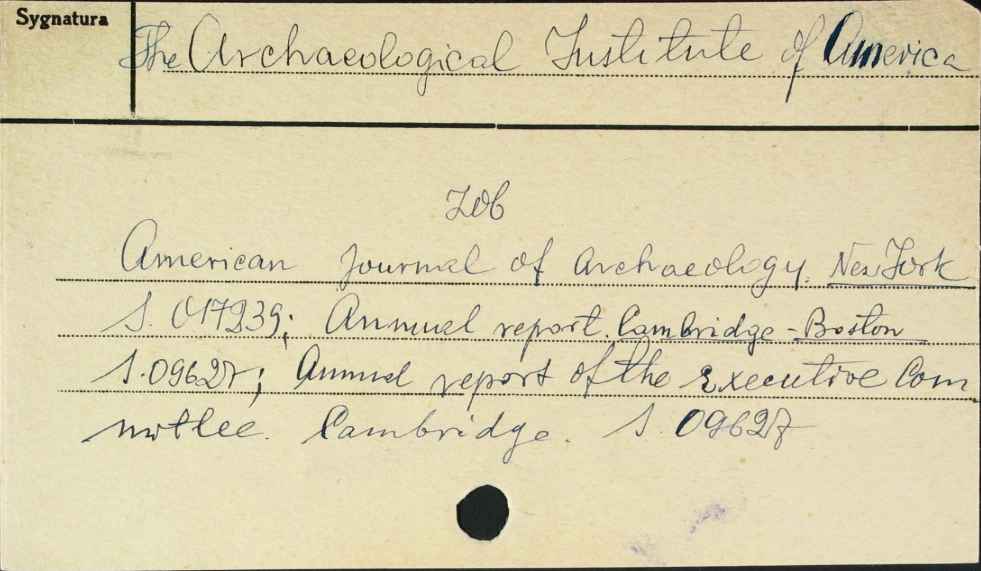 Sygnatura
The Archaeological Institute of America
Zob
American Journal of Archaeology. New York
S. 017239; Annual report. Cambridge-Boston
S.09627; Annual report of the Executive Com
mittee. Cambridge. S 09627